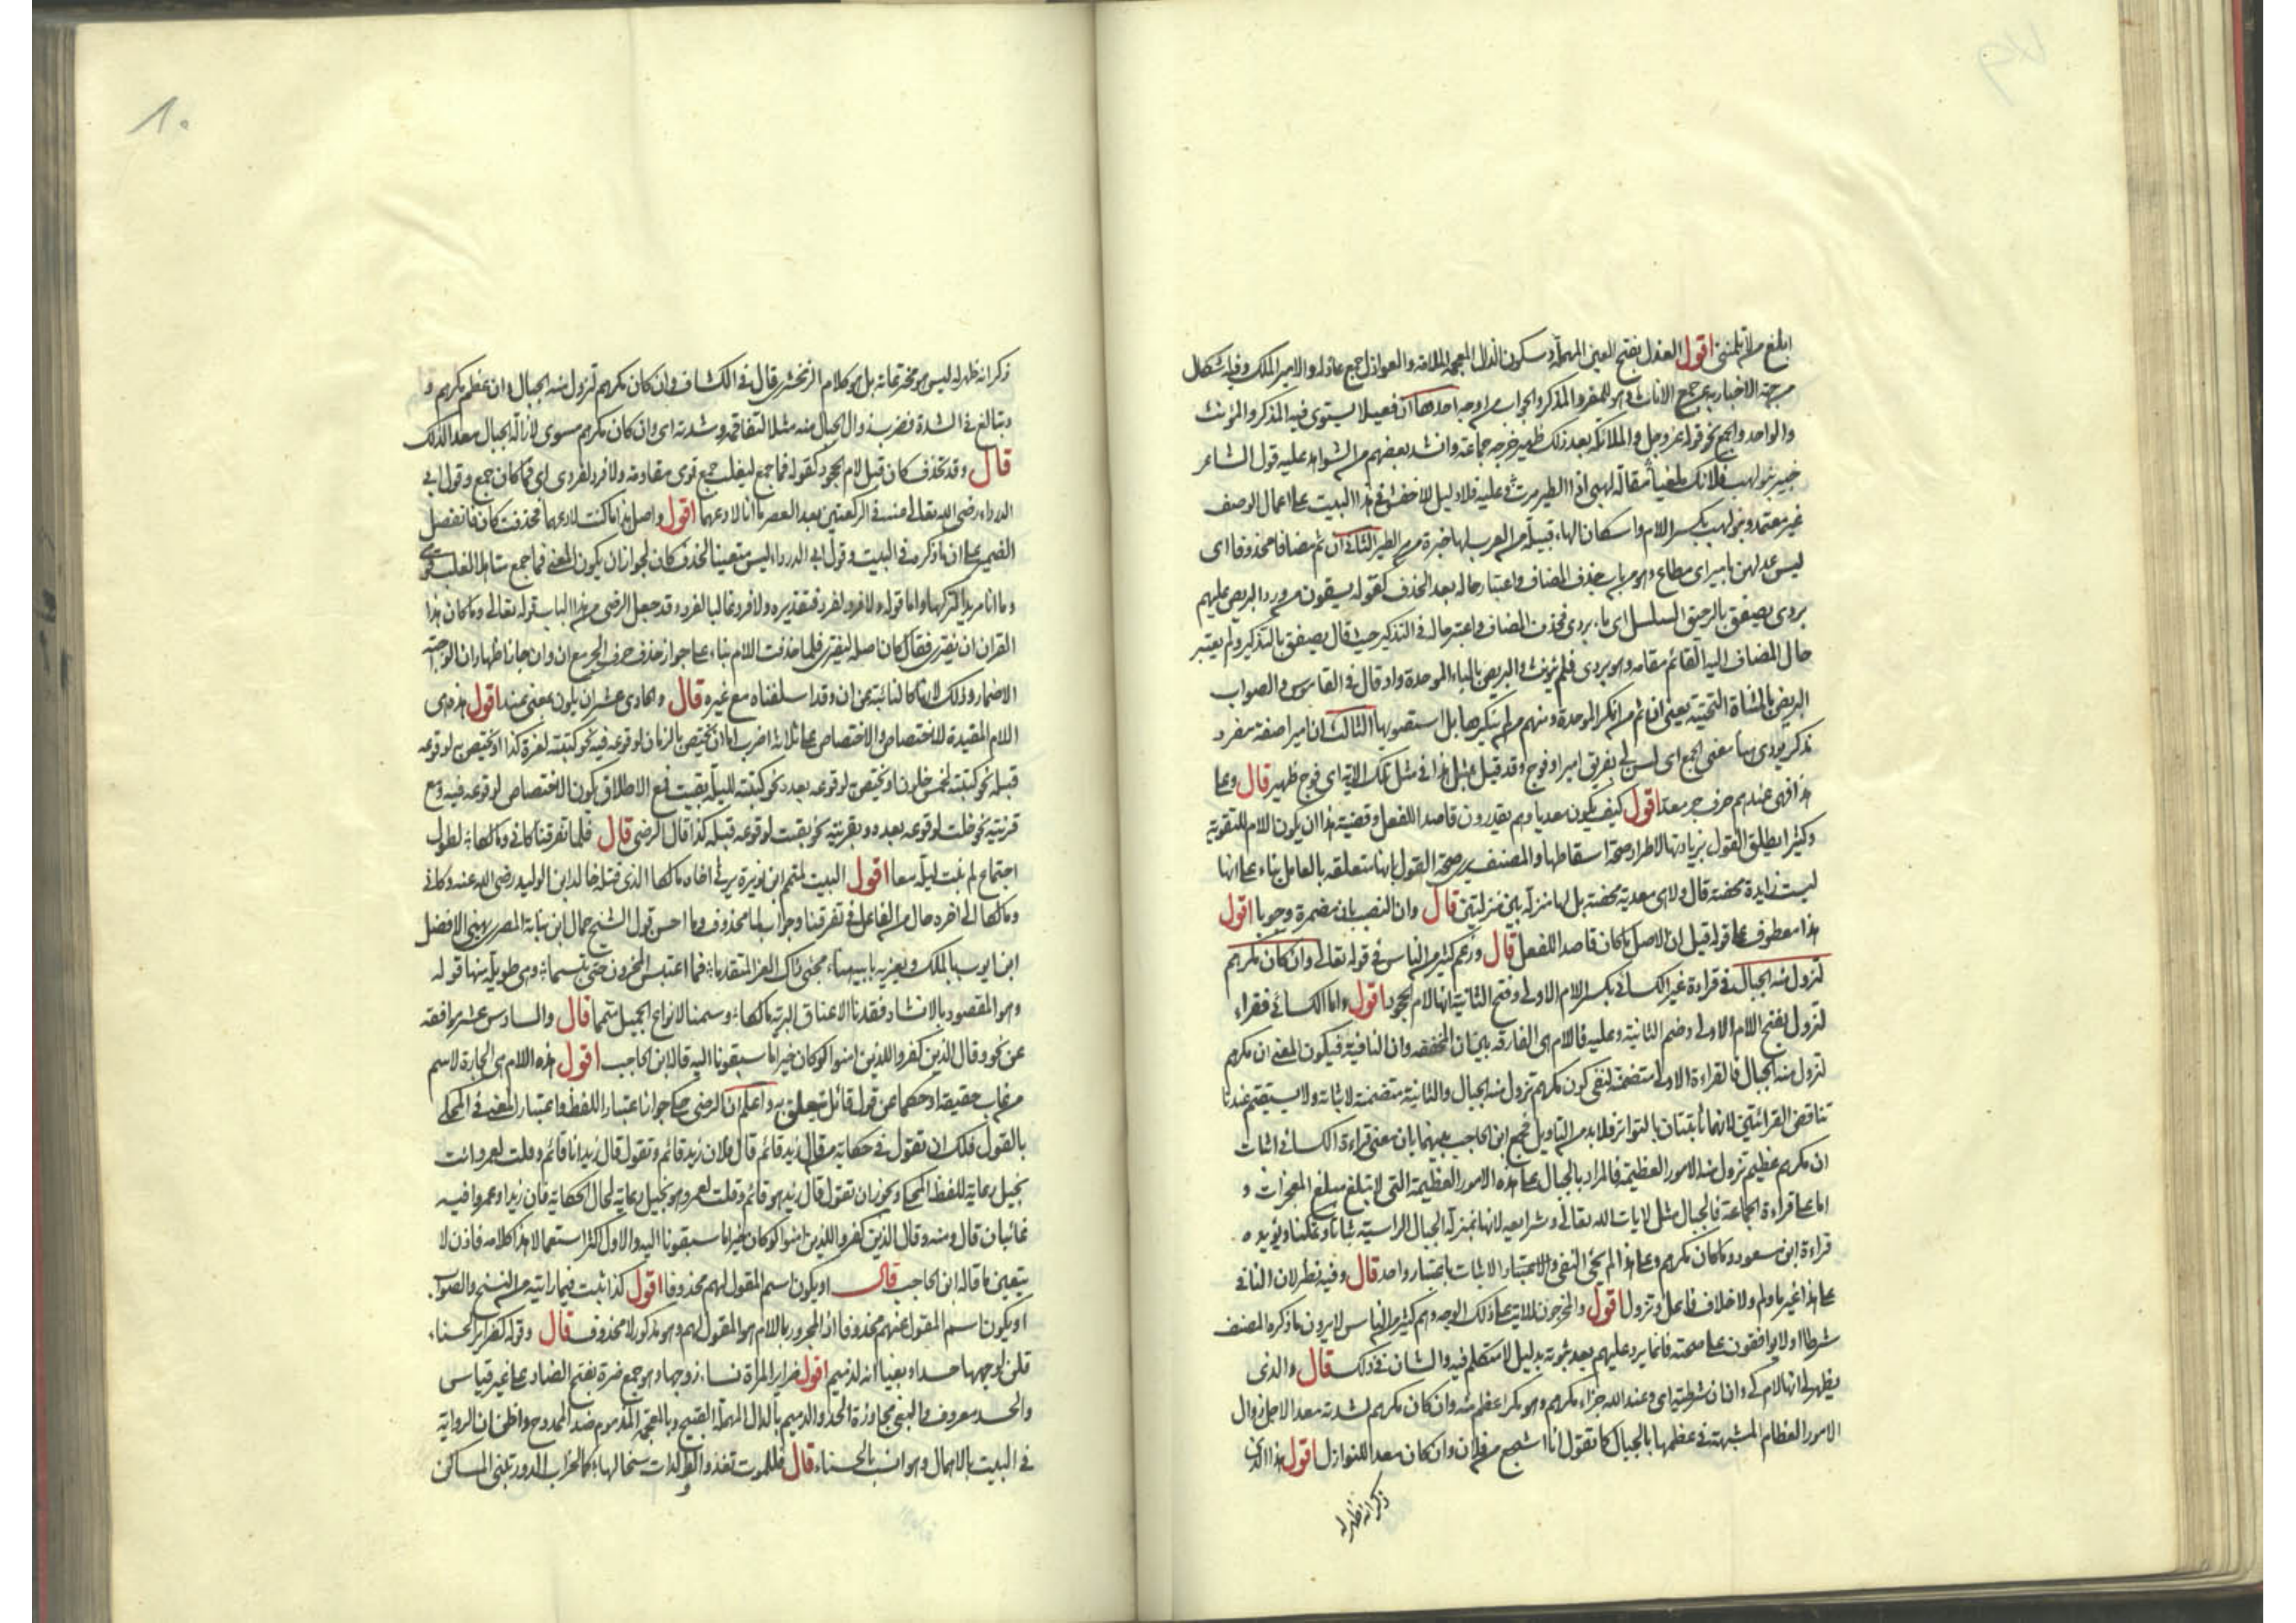 ابلغ من لا تلمنى اقول العذل بفتح العين المهملة وسكون الذال المعجمة الملامة والعواذل جمع عاذلة والامير الملك وفيه اشكال
من جهة الاخبار به عن جمع الاناث وهو للمفرد المذكر والجواب من اوجه احدها ان فعيلا يستوى فيه المذكر والمؤنث
والواحد والجمع نحو قوله عز وجل والملائكة بعد ذلك ظهير خرجه جماعة وانشد بعضهم من الشواهد عليه قول الشاعر
خبير بنو لهب فلا تك ملغيا مقالة لهبى اذا الطير مرت وعليه فلا دليل للاخفش فى هذا البيت على اعمال الوصف
غير معتمد وبنو لهب بكسر اللام واسكان الهاء قبيلة من العرب لها خبرة من الطير الثانى ان ثم مضافا محذوفا اى
ليس عدلهن بامير اى مطاع وهو من باب حذف المضاف واعتبار حاله بعد الحذف كقوله يسقون من ورد البريص عليهم
بردى يصفق بالرحيق السلسل اى ماء بردى فحذف المضاف واعتبر حاله فى التذكير حيث قال يصفق بالتذكير ولم يعتبر
حال المضاف اليه القائم مقامه وهو بردى فلم يؤنث والبريص بالباء الموحدة واد وقال فى القاموس والصواب
البريص بالمثناة التحتية يعنى ان ثم من انكر الموحدة ومنهم من لم ينكرها بل استصوبها الثالث ان اميرا صفة مفرد
مذكر يودى معنى الجمع اى لسن لى بفريق امير او فوج وقد قيل بمثل هذا فى مثل تلك الاية اى فوج ظهير قال وعلى
هذا فهى عندهم حرف جر معد اقول كيف يكون معديا وهم يقدرون قاصدا للفعل وقضية هذا ان يكون اللام للتقوية
وكثيرا يطلق القول بزيادتها لاطراد صحة اسقاطها والمصنف يرى صحة القول بانها متعلقة بالعامل بناء على انها
ليست زايدة محضة قال ولا هى معدية محضة بل لها منزلة بين منزلتين قال وان النصب بان مضمرة وجوبا اقول
هذا معطوف على قوله قيل ان الاصل ما كان قاصدا للفعل قال وزعم كثير من الناس فى قوله تعالى وان كان مكرهم
لتزول منه الجبال فى قراءة غير الكسائى بكسر اللام الاولى وفتح الثانية انها لام الجحود اقول واما الكسائى فقراء
لتزول بفتح اللام الاولى وضم الثانية وعليه فاللام هى الفارقة بين ان المخففة وان النافية فيكون المعنى ان مكرهم
لتزول منه الجبال فالقراءة الاولى متضمنة لنفى كون مكرهم تزول منه الجبال والثانية متضمنة لاثباته ولا يستقيم عندنا
تناقض القرائتين لانهما ثابتتان بالتواتر فلا بد من التاويل فجمع ابن الحاجب بينهما بان معنى قراءة الكسائى اثبات
ان مكرهم عظيم تزول منه الامور العظيمة فالمراد بالجبال على هذه الامور العظيمة التى لا تبلغ مبلغ المعجزات و
اما على قراءة الجماعة فالجبال مثل لايات الله تعالى وشرايعه لانها بمنزلة الجبال الراسية ثباتا وتمكنا ويؤيده
قراءة ابن مسعود وما كان مكرهم وعلى هذا لم يجئ النفى والاثبات باعتبار واحد قال وفيه نظر لان النافى
على هذا غير ما ولم ولاختلاف فاعلى كان وتزول اقول والمخرجون للاية على ذلك الوجه وهم كثير من الناس لا يرون ما ذكره المصنف
شرطا اولا يوافقون على صحته فانما يرد عليهم بعد ثبوته بدليل لا متكلم فيه والشان فى ذلك قال والذى
يظهر لى انها لام كى وان ان شرطية اى وعند الله جزاء مكرهم وهو مكر اعظم منه وان كان مكرهم لشدته معدا لاجل زوال
الامور العظام المشبهة فى عظمها بالجبال كما تقول انا اشجع من فلان وان كان معدا للنوازل اقول هذا الذى
ذكر انه ظهر له
ذكر انه ظهر له ليس هو مخترعاته بل هو كلام الزمخشرى قال فى الكشاف وان كان مكرهم لتزول منه الجبال وان عظم مكرهم و
وتبالغ فى الشدة فضرب زوال الجبال منه مثلا لتفاقمه وشدته اى وان كان مكرهم مسوى لازالة الجبال معدا لذلك
قال وقد تحذف كان قبل لام الجحود كقوله فما جمع ليغلب جمع قومى مقاومة ولا فرد لفرد اى فما كان جمع وقول ابى
الدرداء رضى الله تعالى عنه فى الركعتين بعد العصر ما انا لادعهما اقول واصل هذا ما كنت لادعهما فحذفت كان فانفصل
الضمير على ان ما ذكره فى البيت وقول ابى الدرداء ليس متعينا لحذف كان لجواز ان يكون المعنى فما جمع متاهلا لغلب قومى
وما انا مريدا لتركهما واما قوله ولا فرد لفرد فتقديره ولا فرد غالبا لفرد وقد جعل الرضى من هذا الباب قوله تعالى وما كان هذا
القران ان يفترى فقال كان اصله ليفترى فلما حذفت اللام بناء على جواز حذف حرف الجر مع ان وان جاز اظهار ان الواجبة
الاضمار وذلك لانها كالنائبة عن ان وقد اسلفناه مع غيره قال والحادى عشر ان يكون بمعنى عند اقول هذه هى
اللام المفيدة للاختصاص والاختصاص على ثلاثة اضرب اما ان يختص بالزمان لوقوعه فيه نحو كتبته لغرة كذا او يختص به لوقوعه
قبله نحو كتبته لخمس خلون او يختص به لوقوعه بعده نحو كتبته لليلة بقيت فمع الاطلاق يكون الاختصاص لوقوعه فيه ومع
قرينة نحو خلت لوقوعه بعده وبقرينة نحو بقيت لوقوعه قبله كذا قال الرضى قال فلما تفرقنا كانى ومالكا لطول
اجتماع لم نبت ليلة معا اقول البيت لمتمم ابن نويرة يرثى اخاه مالكا الذى قتله خالد ابن الوليد رضى الله عنه وكانى
ومالكا الى اخره حال من الفاعل فى تفرقنا وجواب لما محذوف وما احسن قول الشيخ جمال ابن نباتة المصرى يهنى الافضل
ابن ايوب بالملك ويعزيه بابيه هناء محى ذاك العزا المتقدما فما عبس المحزون حتى تبسما وهى طويلة منها قوله
وهو المقصود بالانشاد فقدنا لاعناق البرية مالكا وسمنا لانواع الجميل متمما قال والسادس عشر موافقة
عن نحو وقال الذين كفروا للذين امنوا لو كان خيرا ما سبقونا اليه قاله ابن الحاجب اقول هذه اللام هى الجارة لاسم
من غاب حقيقة او حكما عن قول قائل متعلق به واعلم ان الرضى حكى جواز اعتبار اللفظ واعتبار المعنى فى المحكى
بالقول فلك ان تقول فى حكاية من قال زيد قائم قال فلان زيد قائم وتقول قال زيد انا قائم وقلت لعمرو انت
بخيل رعاية للفظ المحكى ويجوز ان تقول قال زيد هو قائم وقلت لعمرو هو بخيل رعاية لحال الحكاية فان زيدا وعمروا فيه
غائبان قال ومنه وقال الذين كفروا للذين امنوا لو كان خيرا ما سبقونا اليه والاول اكثر استعمالا هذا كلامه فاذن لا
يتعين ما قاله ابن الحاجب قال او يكون اسم المقول لهم محذوفا اقول كذا ثبت فيما رايته من النسخ والصواب
او يكون اسم المقول عنهم محذوفا اذ المجرور باللام هو المقول لهم وهو مذكور لا محذوف قال وقوله كضراير الحسناء
قلن لوجهها حسدا وبغيا انه لذميم اقول ضراير المراة نساء زوجها وهو جمع ضرة بفتح الضاد على غير قياس
والحسد معروف والبغى مجاوزة الحد والدميم بالدال المهملة القبيح وبالمعجمة المذموم ضد الممدوح واظن ان الرواية
فى البيت بالاهمال وهو انسب بالحسناء قال فللموت تغذو الوالدات سخالها كما لخراب الدور تبنى المساكن